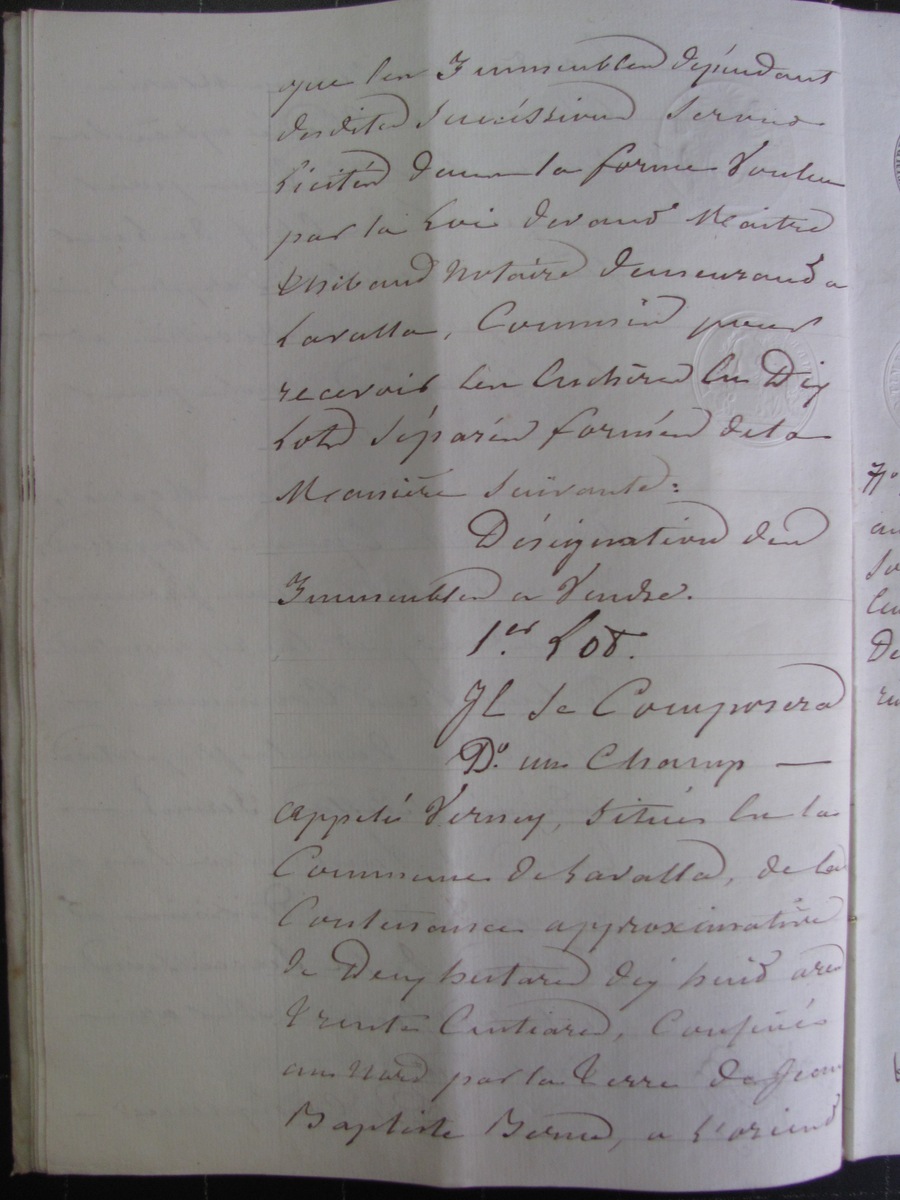 que les Immeubles dépendant
desdites Succéssions Seront
Licités dans la forme Voulue
par la Loi devant Maitre
Thibaud Notaire demeurant a
Lavalla, Commis pour
recevoir les Enchères En Dix
Lots Séparés formés de la
Manière Suivante:
Désignation des
Immeubles a Vendre.
1.er Lot.
Il Se Composera
D.º un Champ —
appelé Verney, Situé En la
Commune de Lavalla, de la
Contenance approximative
de Deux hectares dix huit ares
trente Centiares, Confiné
au Nord par la terre de Jean
Baptiste Berne, a L'orient